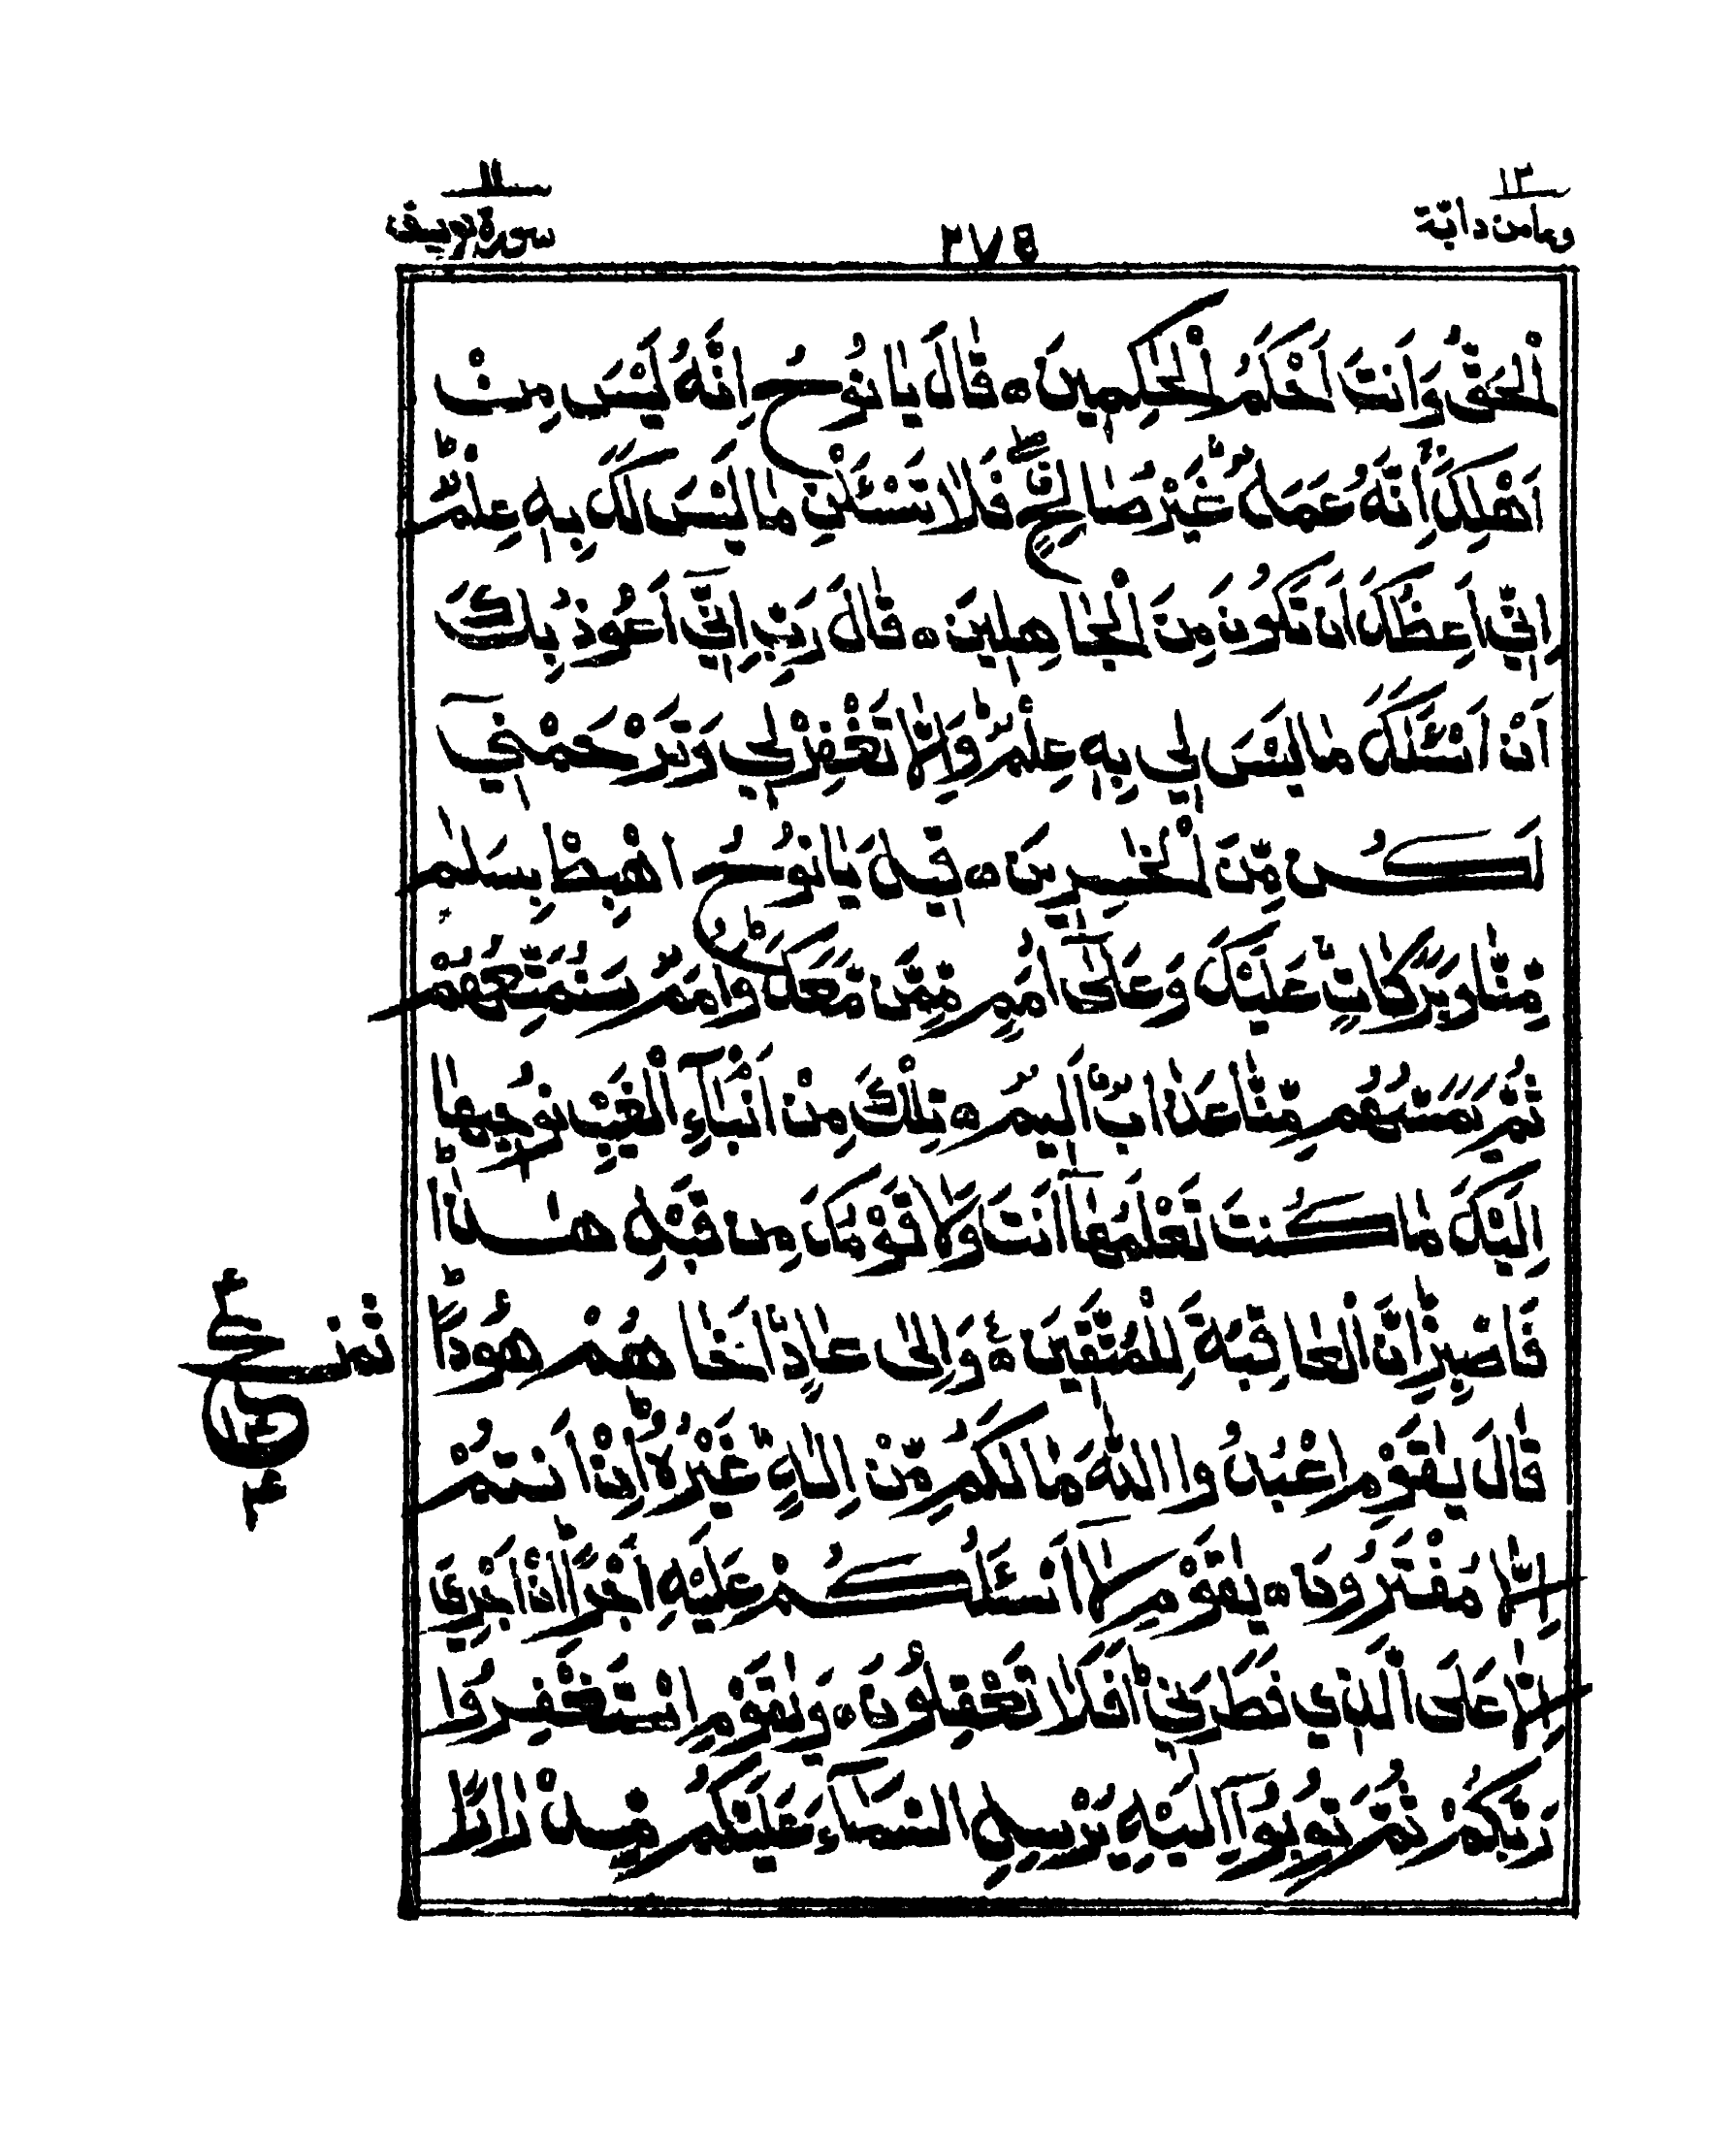 ١٢
وما من دآبّة
٢٧٥
١١
سورة يوسف
الْحَقُّ وَاَنْتَ اَحْكَمُ الْحٰكِمِينَ ○ قٰالَ يٰا نُوحُ اِنَّهُ لَيْسَ مِنْ
اَهْلِكَ اِنَّهُ عَمَلٌ غَيْرُ صٰالِحٍ فَلٰا تَسْئَلْنِ مٰا لَيْسَ لَكَ بِهِ عِلْمٌ
اِنّي اَعِظُكَ اَنْ تَكُونَ مِنَ الْجٰاهِلِينَ ○ قٰالَ رَبِّ اِنّي اَعُوذُ بِكَ
اَنْ اَسْئَلَكَ مٰا لَيْسَ لي بِهِ عِلْمٌ وَاِلّٰا تَغْفِرْ لي وَتَرْحَمْني
اَكُنْ مِّنَ الْخٰسِرِينَ ○ قِيلَ يٰا نُوحُ اهْبِطْ بِسَلٰمٍ
مِّنّٰا وَبَرَكٰاتٍ عَلَيْكَ وَعَلٰى اُمَمٍ مِّمَّنْ مَّعَكَ وَاُمَمٌ سَنُمَتِّعُهُمْ
ثُمَّ يَمَسُّهُمْ مِّنّٰا عَذٰابٌ اَلِيمٌ ○ تِلْكَ مِنْ اَنْبٰآءِ الْغَيْبِ نُوحِيهٰا
اِلَيْكَ مٰا كُنْتَ تَعْلَمُهٰا اَنْتَ وَلٰا قَوْمُكَ مِنْ قَبْلِ هٰذٰا
فَاصْبِرْ اِنَّ الْعٰاقِبَةَ لِلْمُتَّقِينَ ○ وَاِلٰى عٰادٍ اَخٰاهُمْ هُودًا
قٰالَ يٰقَوْمِ اعْبُدُوا اللّٰهَ مٰا لَكُمْ مِّنْ اِلٰهٍ غَيْرُهُ اِنْ اَنْتُمْ
اِلّٰا مُفْتَرُونَ ○ يٰقَوْمِ لٰا اَسْئَلُكُمْ عَلَيْهِ اَجْرًا اِنْ اَجْرِيَ
اِلّٰا عَلَى الَّذي فَطَرَني اَفَلٰا تَعْقِلُونَ ○ وَيٰقَوْمِ اسْتَغْفِرُوا
رَبَّكُمْ ثُمَّ تُوبُوا اِلَيْهِ يُرْسِلِ السَّمٰآءَ عَلَيْكُمْ مِدْرٰارًا
ثمن